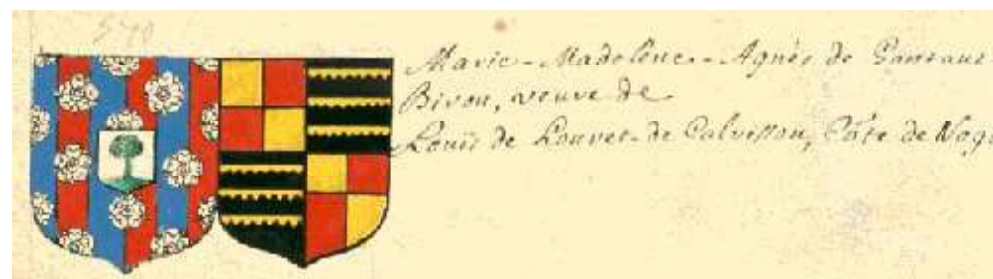 570
Marie-Madelene-Agnès de Gontaut
Biron, veuve de
Louis de Louvet-de Calvisson, Cōte de Nog